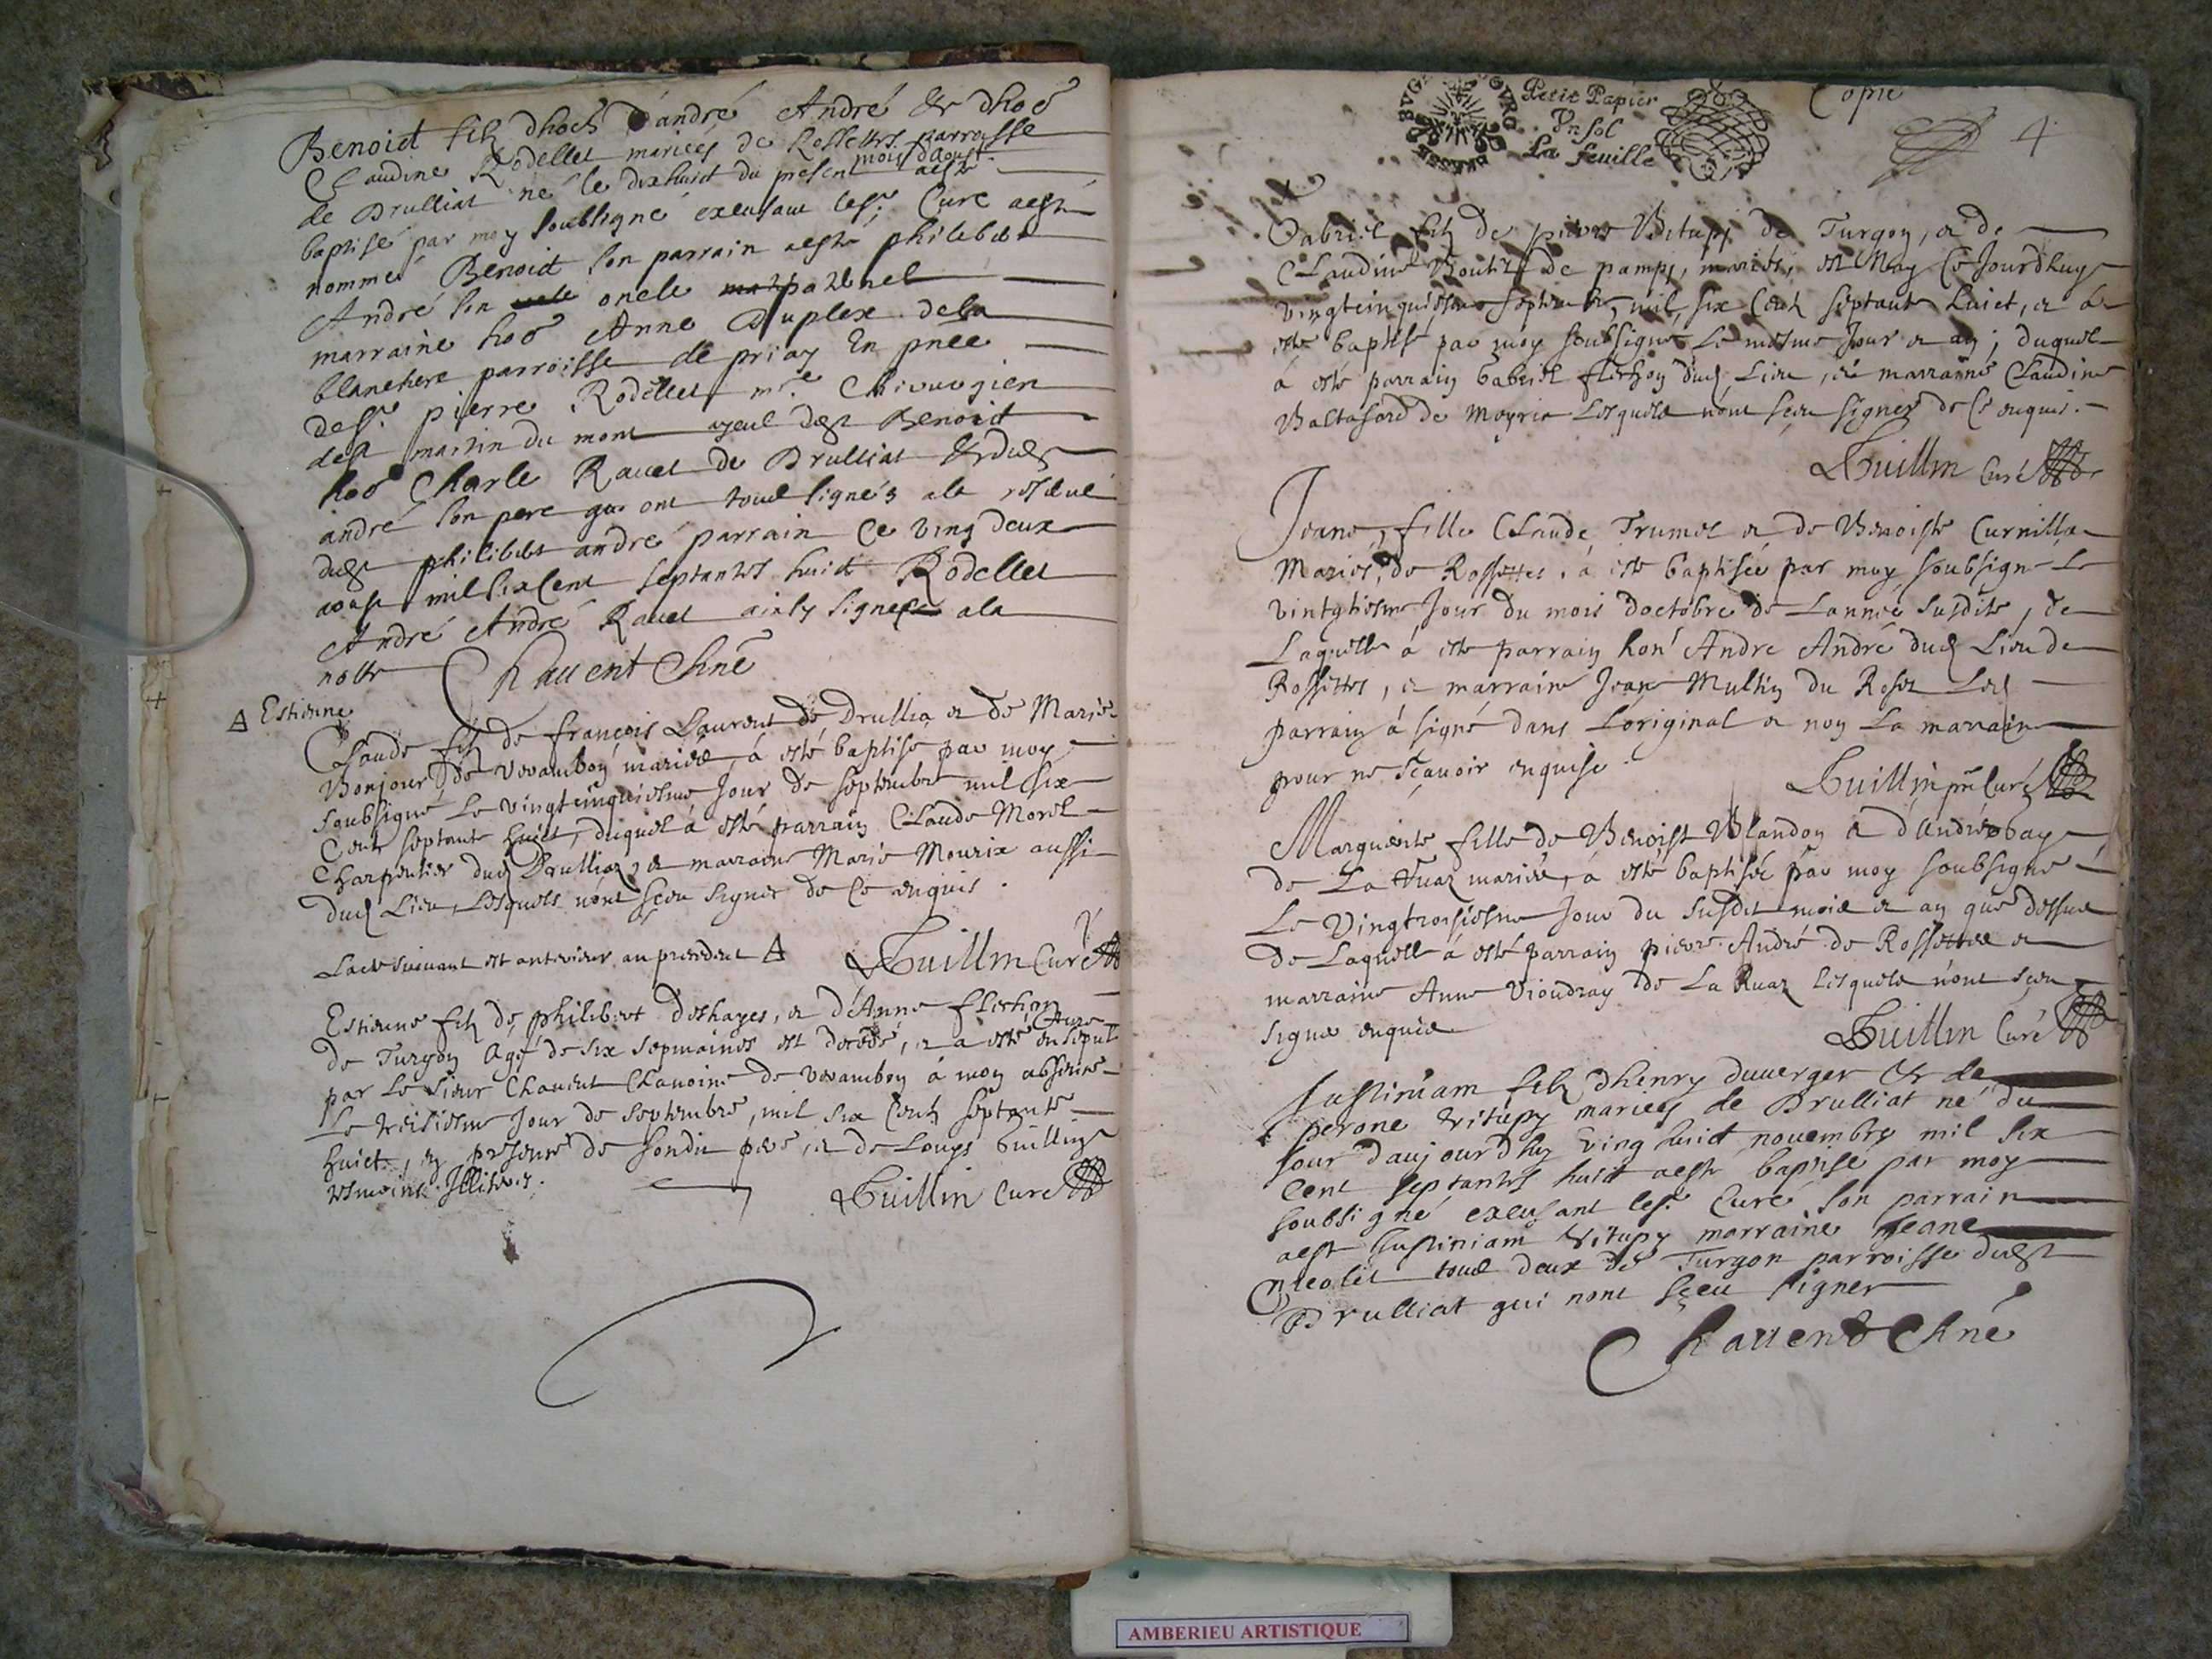 Benoict filz dhoñ d'andré André & dhoõ
Claudine Rodellet mariés de Rossettes parroisse
de Drulliat né le dixhuict du present mois daoust aesté
baptisé par moy soubsigné excusant lesr. Curé aesté
nommé Benoict son parrain aesté philibert
André son oncle paternel
marraine hoõ Anne Duplex dela
blanchere parroisse de priay En pñce
desr. pierre Rodellet me. Chirurgien
dest martin du mont ayeul dudt Benoict
hoõ Charle Rauet de Drulliat & dudt
andré son pere qui ont tous signés ala reserue
dudt philibert andré parrain Ce ving deux
aoust mil sixcent septantes huict Rodellet
André André Rauet ainsy signés ala
notte Chauent Chñe
Δ Estienne
Claude filz de françois Laurent de Drullia et de Marie
Bonjour de Varambon mariés, à esté baptisé par moy
soubsigné Le vingtcinquiesme Jour de septembre mil six
Centz septante huict, duquel à esté parrain Claude Morel
Charpentier dud Drulliaz, et marraine Marie Mourix aussi
dud Lieu, Lesquels n'ont sçeu signer de Ce enquis.
Lacte suiuant est anterieur au precedent Δ Guillin Curé
Estienne filz de philibert deshayes, et d'Anne flechon
de Turgon Agé de six sepmaines est decedé, et a esté ensepulturé
par Le sieur Chauent Chanoine de Varambon à mon absence
Le treisiesme Jour de septembre, mil six Centz septante
huict, en presence de sondit pere, et de Louys Guillin
tesmoins Illiteres. Guillin Curé
Petit Papier
Vn sol
La feuille
Copie
4
Gabriel filz de pierre Vitupi de Turgon, et de
Claudine de pampi, mariés, est Nay Ce Jourdhuy
vingtcinquiesme septembre, mil, six Centz septante huict, et à
esté baptisé par moy soubsigné Le mesme Jour et an; duquel
à esté parrain Gabriel flechon dud Lieu, et marraine Claudine
Baltasard de Meyria Lesquels n'ont sçeu signer de Ce enquis.
Guillin Curé
Jeane, fille Claude Trumel et de Benoiste Curnilla
Mariés, de Rossettes, à esté baptisée par moy soubsigné Le
vintgtiesme Jour du mois doctobre de Lannée susdite, de
Laquelle à esté parrain hon Andre André dud Lieu de
Rossettes, et marraine Jeane Multin du Roset Led
parrain à signé dans Loriginal et non La marraine
pour ne sçauoir enquise.
Guillin prẽ Curé
Marguerite fille de Benoist Blandon et d'Andrée bay
de La Ruaz mariés, à esté baptisée par moy soubsigné
Le Vingtroisiesme Jour du susdit mois et an que dessus
de Laquelle à esté parrain pierre André de Rossettes et
marraine Anne Vioudray de La Ruaz Lesquels n'ont sçeu
signer enquis
Guillin Curé
Justiniam filz dhenry duuerger & de
perone vitupy mariés de Drulliat né du
jour daujourdhy ving huict nouembre mil six
cent septantes huict aesté baptisé par moy
soubsigné excusant lesr. Curé son parrain
aesté Justiniam vitupy marraine Jeane
nicolet tous deux de Turgon parroisse dudt
Drulliat qui nont sçeu signer
Chauent Chñe
AMBERIEU ARTISTIQUE